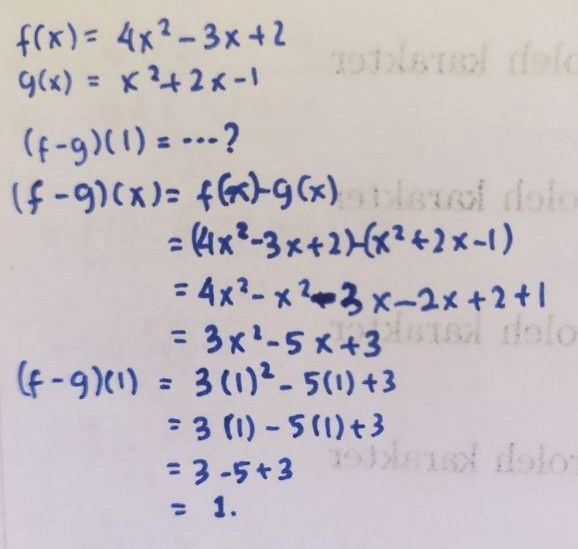 f(x) = 4x² - 3x + 2
g(x) = x² + 2x - 1
(f - g)(1) = ...?
(f - g)(x) = f(x) - g(x)
= (4x² - 3x + 2) - (x² + 2x - 1)
= 4x² - x² - 3x - 2x + 2 + 1
= 3x² - 5x + 3
(f - g)(1) = 3(1)² - 5(1) + 3
= 3(1) - 5(1) + 3
= 3 - 5 + 3
= 1.
oleh karakter
oleh karakter
oleh karakter
oleh karakter